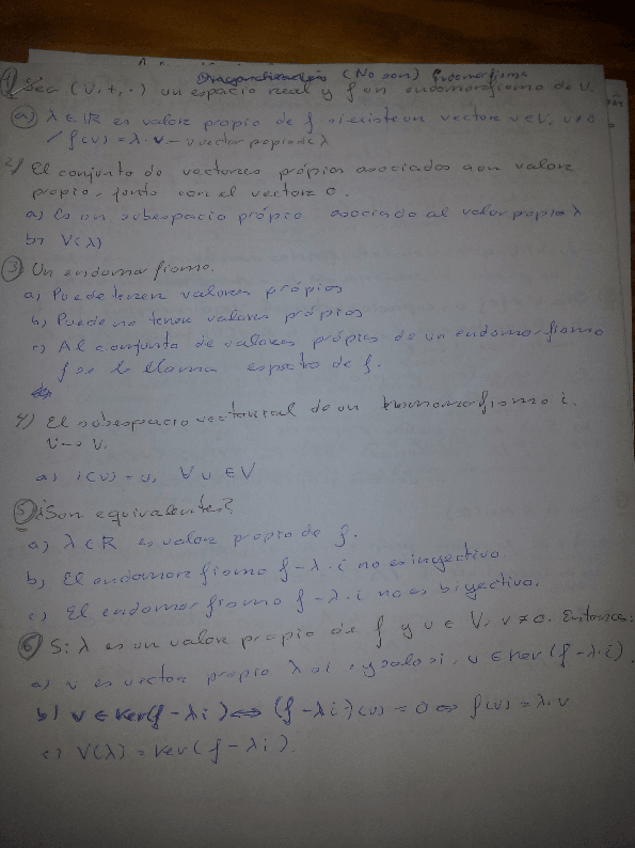 Diagonalización (No son) Endomorfismo
1) Sea (V, +, ·) un espacio real y f un endomorfismo de V.
a) λ ∈ R es valor propio de f si existe un vector v ∈ V, v ≠ 0
/ f(v) = λ · v – v vector propio de λ
2) El conjunto de vectores própios asociados a un valor
propio, junto con el vector 0.
a) Es un subespacio própio asociado al valor propio λ
b) V(λ)
3) Un endomorfismo.
a) Puede tener valores própios
b) Puede no tener valores própios
c) Al conjunto de valores própios de un endomorfismo
f se le llama espectro de f.
4) El subespacio vectorial de un homomorfismo i.
V → V.
a) i(v) = v, ∀ v ∈ V
5) ¿Son equivalentes?
a) λ ∈ R es valor propio de f.
b) El endomorfismo f - λ · i no es inyectivo.
c) El endomorfismo f - λ · i no es biyectivo.
6) Si λ es un valor propio de f y v ∈ V, v ≠ 0. Entonces:
a) v es vector propio λ si, y solo si, v ∈ Ker (f - λ · i).
b) v ∈ Ker(f - λi) ⇔ (f - λi)(v) = 0 ⇔ f(v) = λ · v
c) V(λ) = Ker (f - λi).